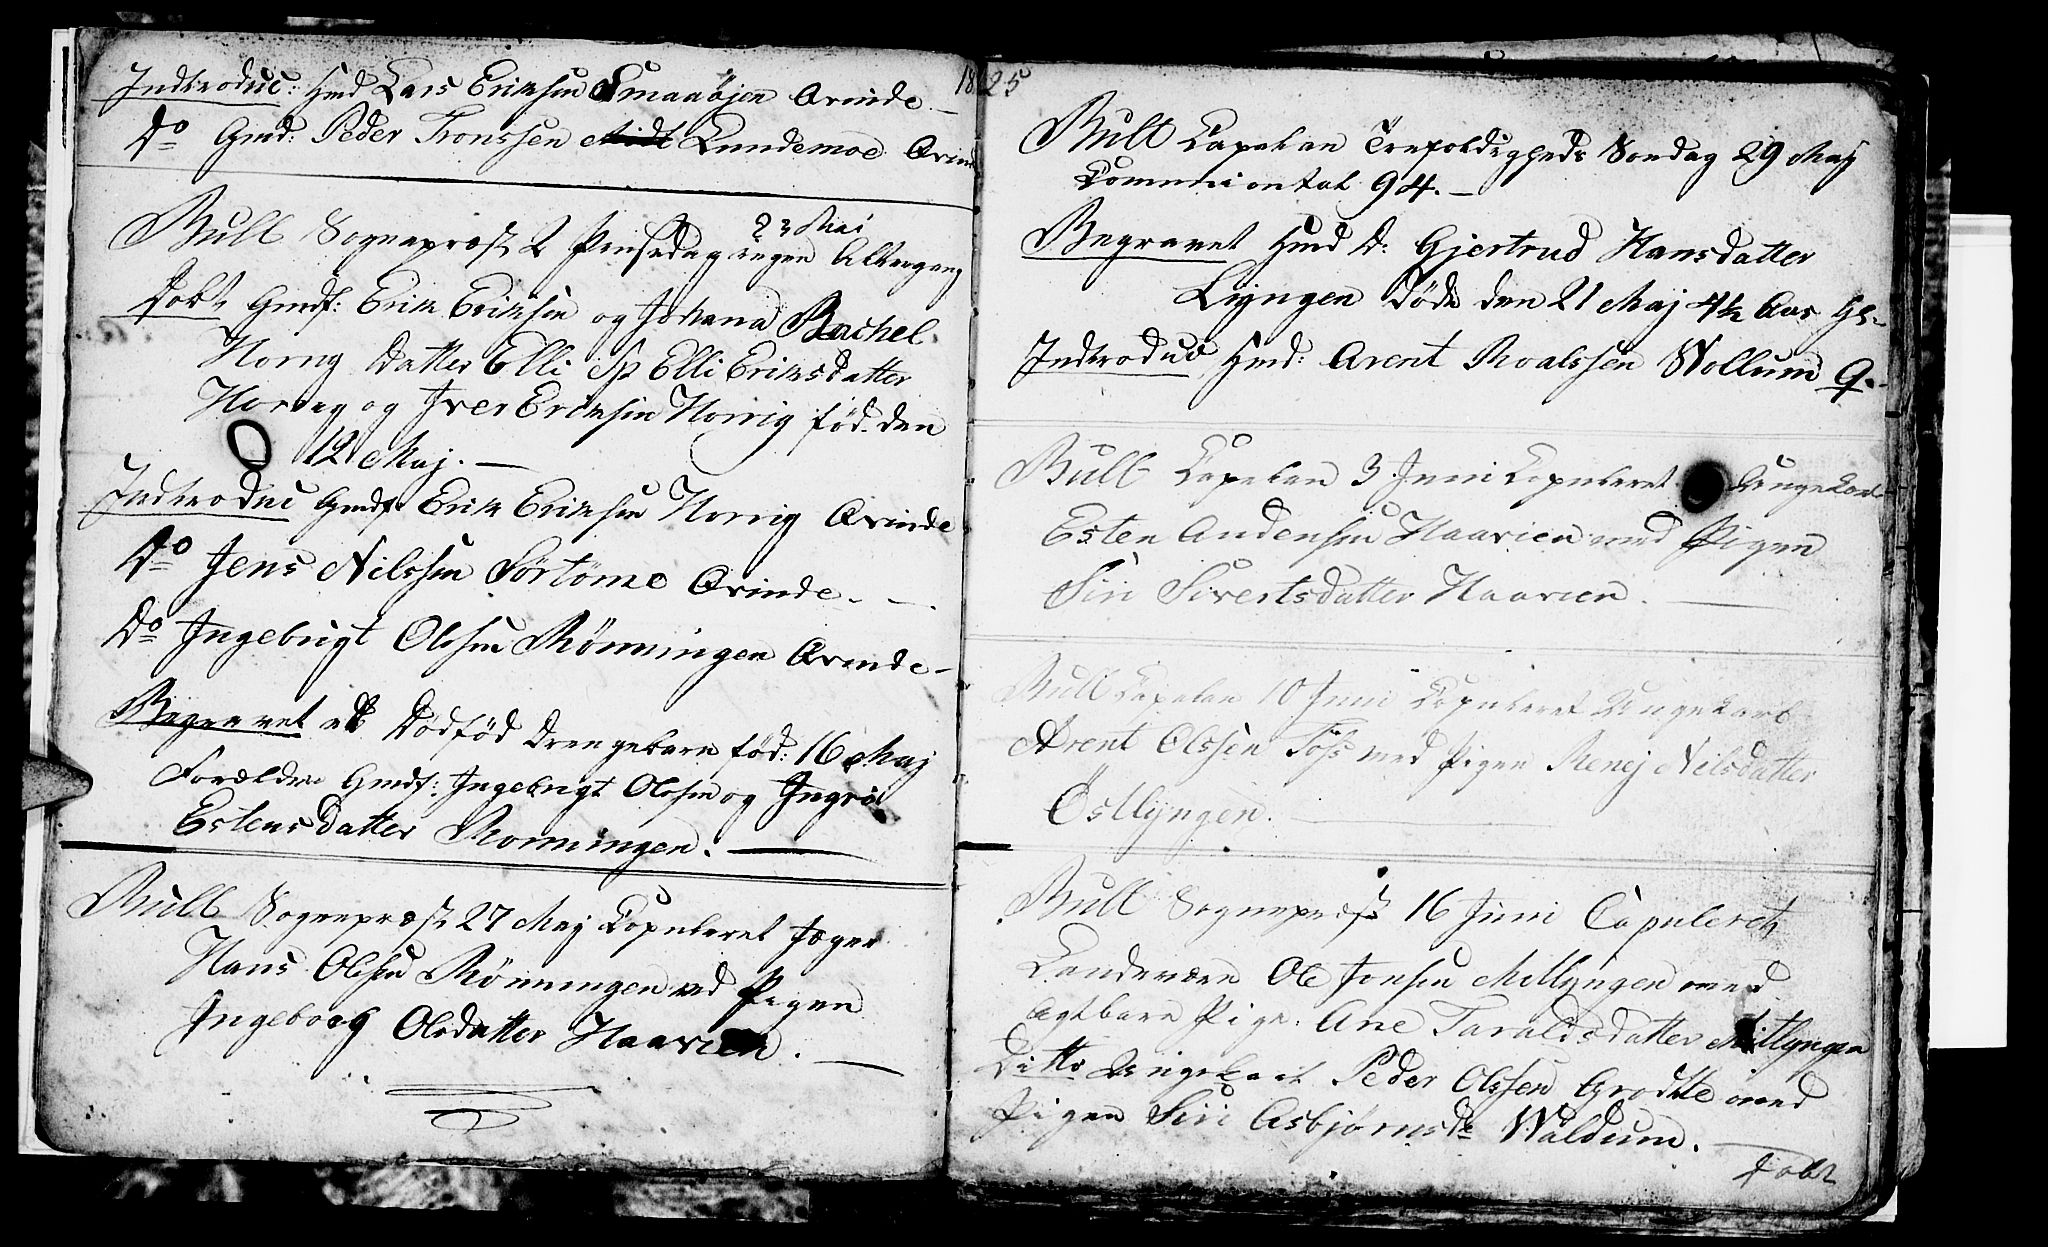 1825
Indtroduc: Hmd Lars Eriksen Smaaøjen Qvinde
Do Gmd: Peder Tronssen Lundemoe Qvin
Bull Sognepræst 2 Pinsedag 23 Mai ingen Altergang
Døbt Gmdf: Erik Eriksen og Johana Rachel
Horrig Datter Elli Sp Elli Eriksdatter
Horrig og Iver Eriksen Horrig fød. den
12 Maj. —
Indtroduc Gmdf Erik Eriksen Horrig Qvinde
Do Jens Nilssen Sørtømе Qvinde. —
Do Ingebrigt Olssen Rønningen Qvinde —
Begravet et Dødfød Drengebarn fød: 16 Maj
Forældre Gmdf: Ingebrigt Olssen og Ingrj
Estensdatter Ronningen. —
Bull Sognepræst 27 Maj Copuleret Jæger
Hans Olssen Rønningen med Pigen
Ingeborg Olsdatter Haavien. —
Bull Capelan Trefoldigheds Søndag 29 Maj
Communiontal 94. —
Begravet Hmd D: Gjertrud Hansdatter
Lyngen Døde den 21 Maj 4½ Aar Gl.
Indtroduc Hmd: Arent Roalssen Wollum Q.
Bull Capelan 3 Juni Copuleret Ungekarl
Esten Andensen Haavien med Pigen
Siri Sivertsdatter Haavien. —
Bull Capelan 10 Juni Copuleret Ungekarl
Arent Olssen Foss med Pigen Renej Nilsdatter
Östlyngen. —
Bull Sognepræst 16 Juni Copuleret
Landeværn Ole Jonsen Mitlyngen med
Agtbare Pige Ane Taraldsdatter Mitlyngen
Ditto Ungekarl Peder Olssen Grodtte med
Pigen Siri Asbjørnsdr Waldum. —
Døbt